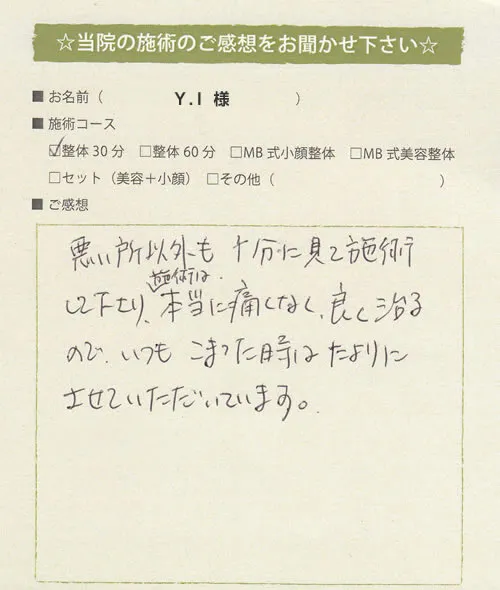 ☆当院の施術のご感想をお聞かせ下さい☆
■お名前（ Y.I 様 ）
■施術コース
☑整体30分 □整体60分 □MB式小顔整体 □MB式美容整体
□セット（美容＋小顔） □その他（ ）
■ご感想
悪い所以外も十分に見て施術
施術は、
して下さり、本当に痛くなく、良く治る
ので、いつもこまった時はたよりに
させていただいています。